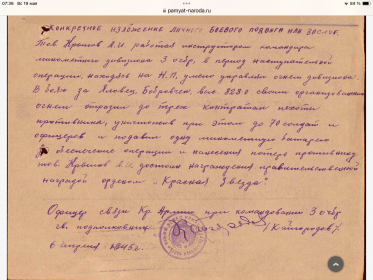 07:36 Вс 19 мая
54 %
pamyat-naroda.ru
КОНКРЕТНОЕ ИЗЛОЖЕНИЕ ЛИЧНОГО БОЕВОГО ПОДВИГА ИЛИ ЗАСЛУГ.
Тов. А.И работая инструктором командира
минометного дивизиона 3 обр, в период наступательной
операции, находясь на Н.П., умело управлял огнем дивизиона.
В бою за выс. 328.0 своим организованным
огнем отразил до трех контратак пехоты
противника, уничтожив при этом до 70 солдат и
офицеров и подавил одну минометную батарею
За обеспечение операции и нанесения потерь противнику
тов. А.И достоин награждения правительственной
наградой орденом „Красная Звезда"
Офицер связи Кр. Армии при командовании 3 обр
подполковник /Кайгородов/
6 апреля 1945г.